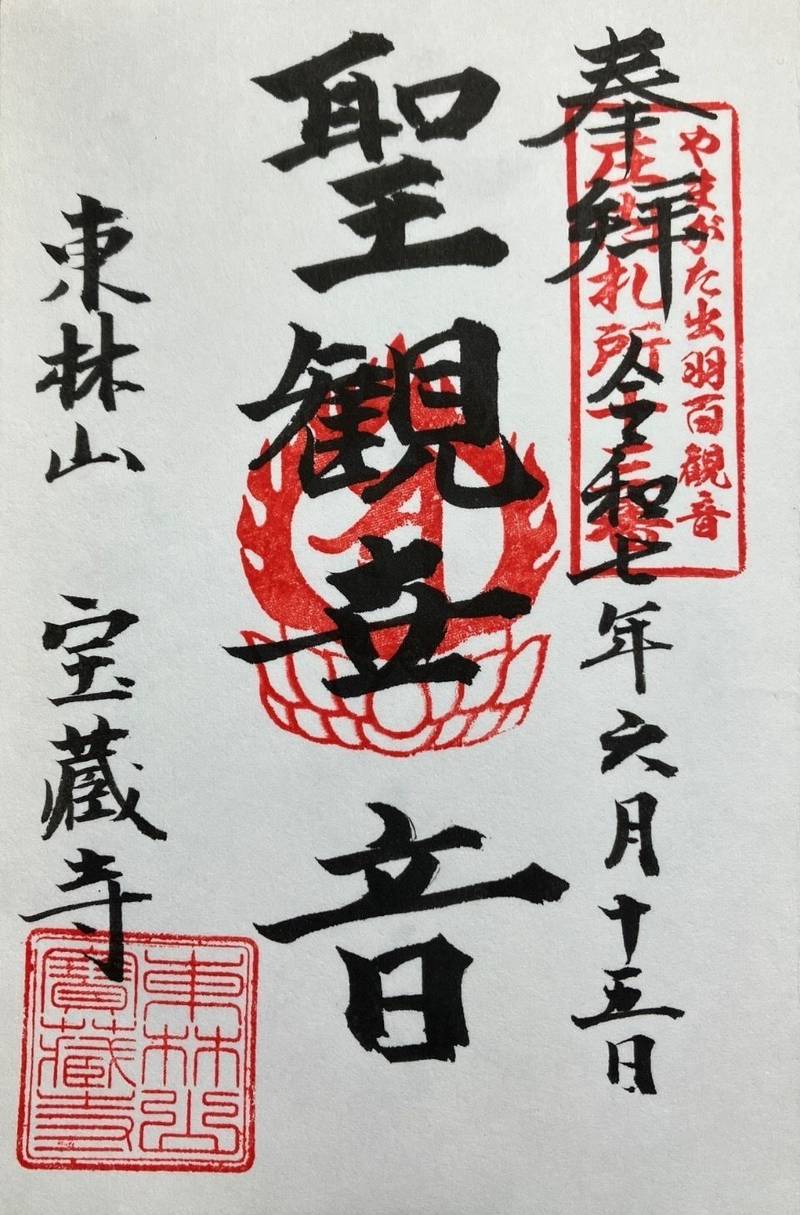 やまがた出羽百観音
庄内札所
奉拝
令和七年六月十五日
聖観世音
東林山 宝蔵寺
東林山
寶蔵寺